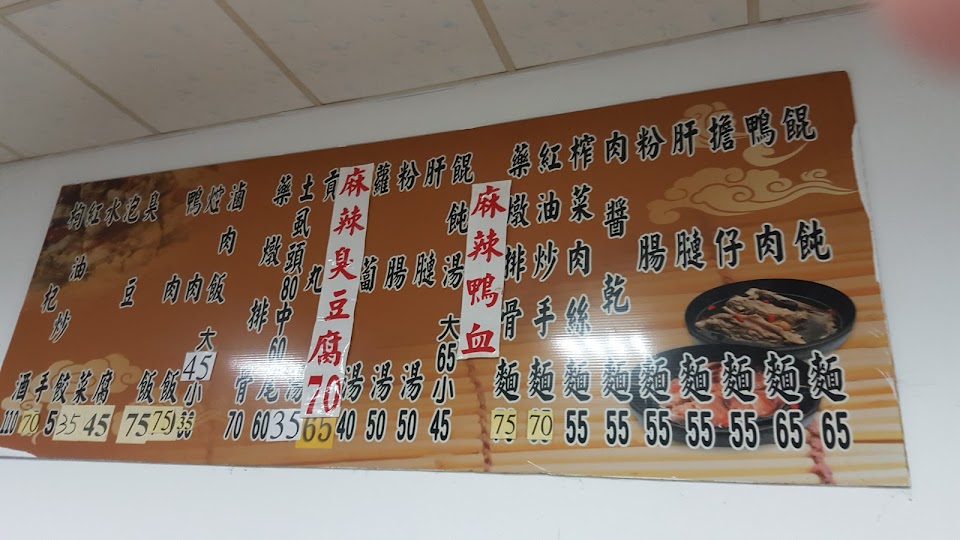 餛飩麵 65
鴨肉麵 65
擔仔麵 55
肝腱麵 55
粉腸麵 55
肉醬乾麵 55
榨菜肉絲麵 55
紅油炒手麵 70
藥燉排骨麵 75
麻辣鴨血 65
餛飩湯 大65 小45
肝腱湯 50
粉腸湯 50
蘿蔔湯 40
麻辣臭豆腐 70
貢丸湯 35
土虱 頭80 中60 尾60
藥燉排骨 70
滷肉飯 大45 小35
焢肉飯 75
鴨肉飯 75
臭豆腐 45
泡菜 35
水餃 5
紅油炒手 70
枸杞酒 110